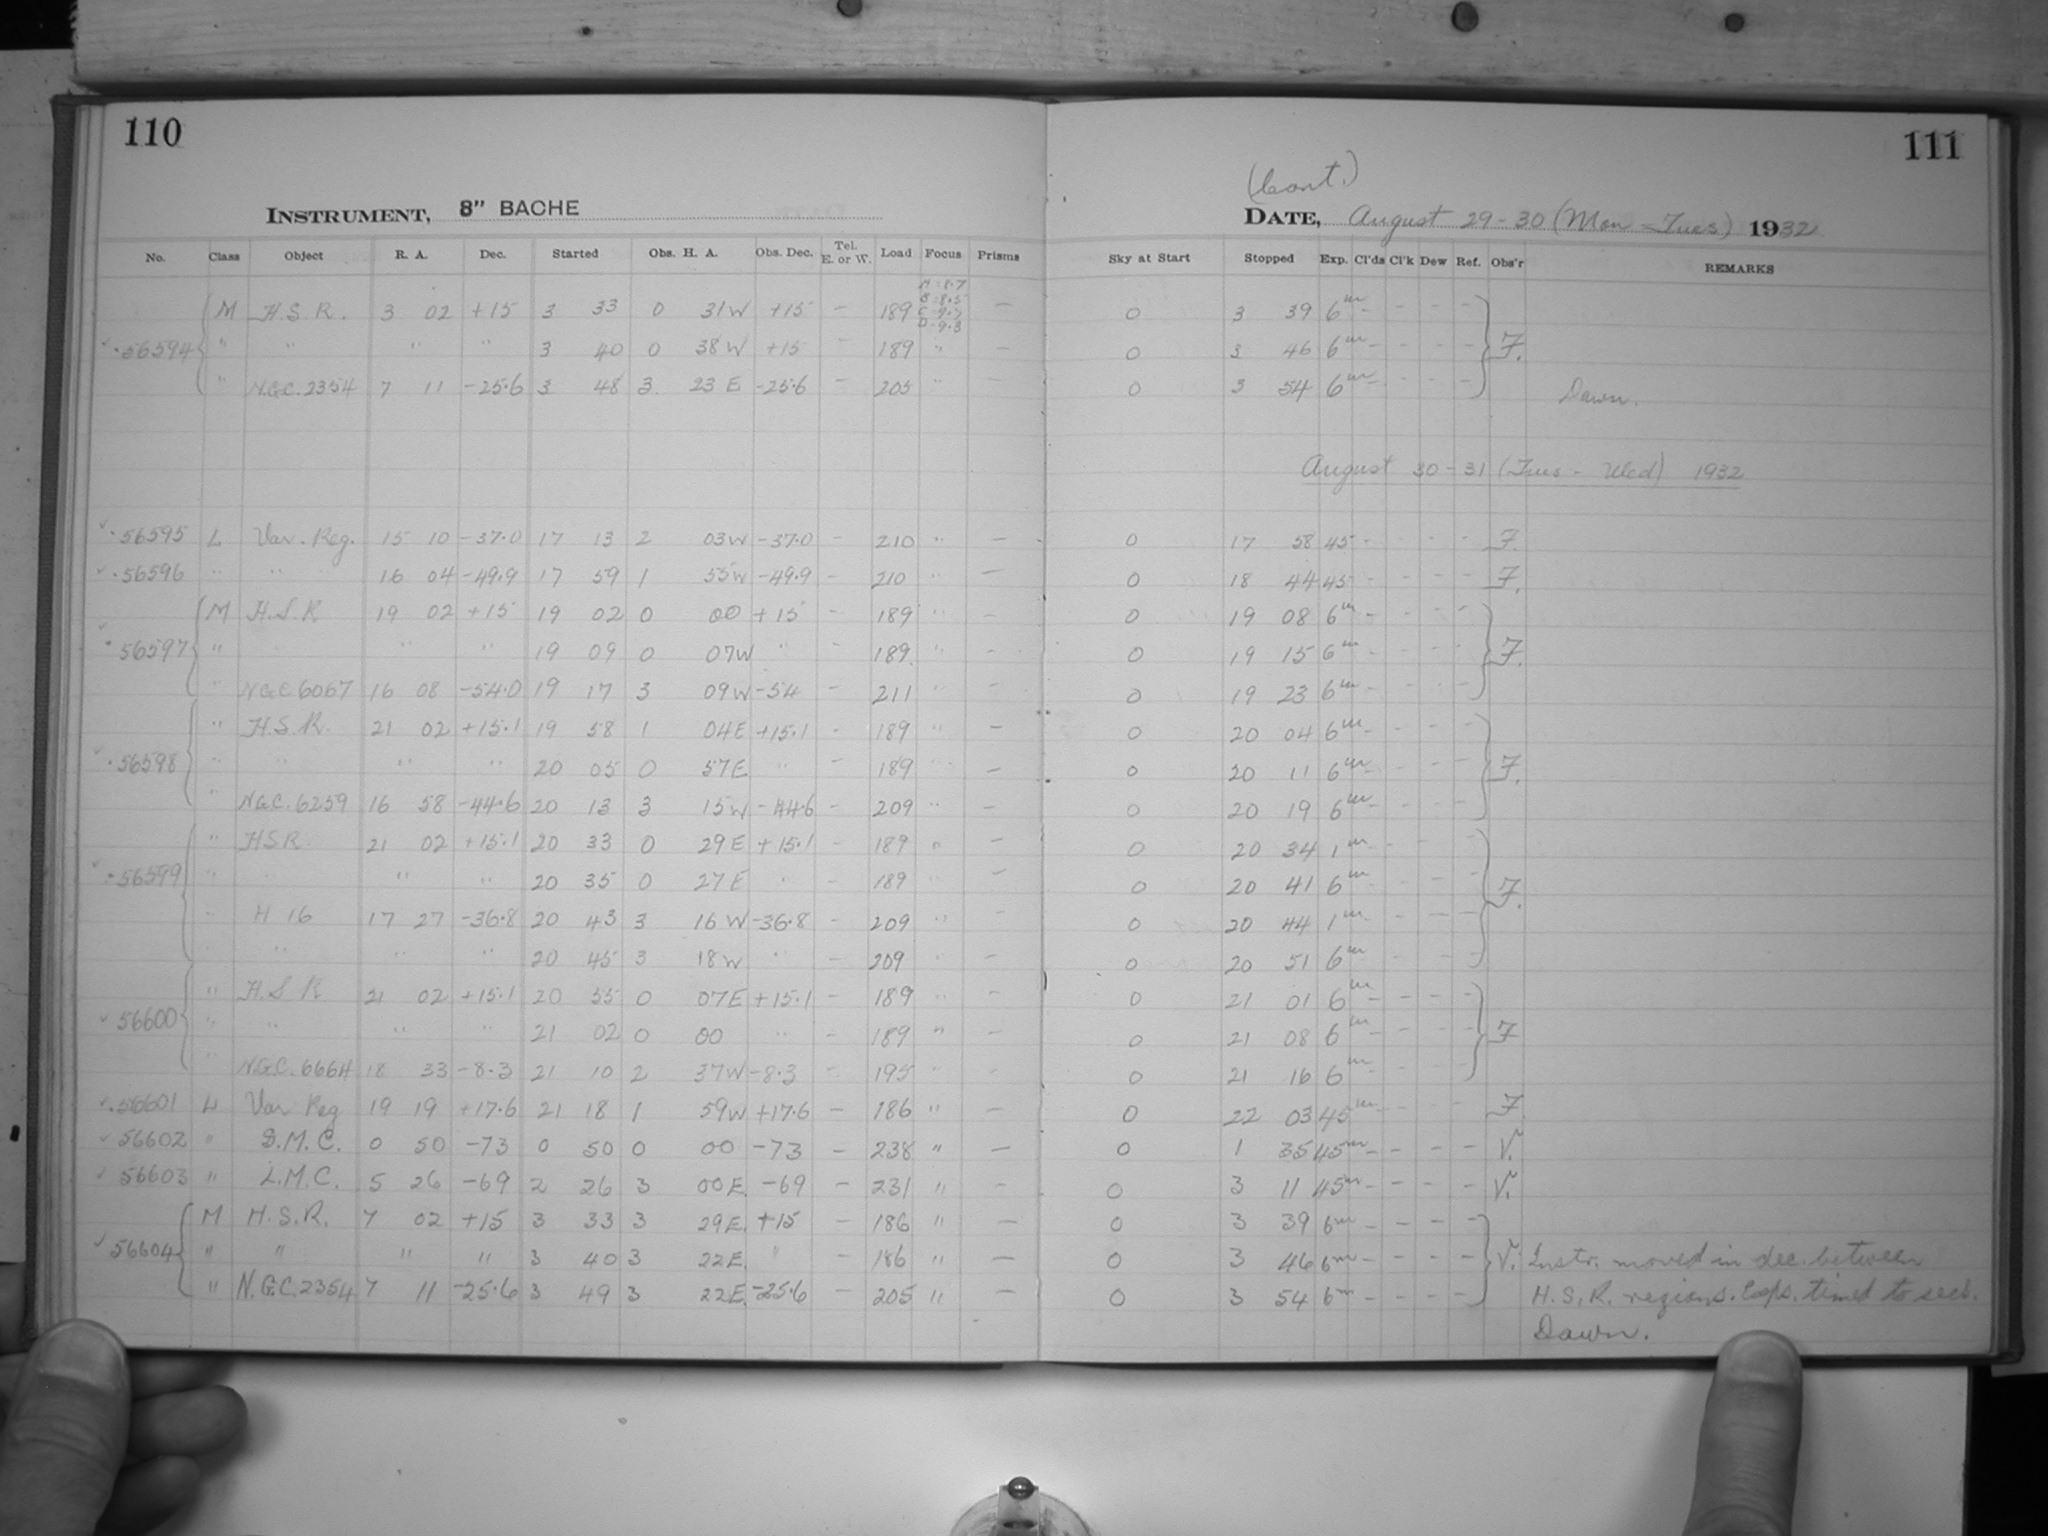 110
111
(Cont.)
INSTRUMENT, 8" BACHE
DATE, August 29-30 (Mon-Tues) 1932
No. Class Object R. A. Dec. Started Obs. H. A. Obs. Dec. Tel. E. or W. Load Focus Prisms Sky at Start Stopped Exp. Cl'ds Cl'k Dew Ref. Obs'r REMARKS
M H.S.R. 3 02 +15 3 33 0 31W +15 - 189 - 0 3 39 6m - - - -
56594 " " " " 3 40 0 38W +15 - 189 " - 0 3 46 6m - - - - F.
" N.G.C. 2354 7 11 -25.6 3 48 3 23 E -25.6 - 205 " - 0 3 54 6m - - - - Dawn.
August 30-31 (Tues - Wed) 1932
56595 L Var. Reg. 15 10 -37.0 17 13 2 03W -37.0 - 210 " - 0 17 58 45 - - - - F.
56596 " " 16 04 -49.9 17 59 1 55W -49.9 - 210 " - 0 18 44 45 - - - - F.
M H.S.R 19 02 +15 19 02 0 00 +15 - 189 " - 0 19 08 6m - - - -
56597 " " " 19 09 0 07W " - 189 " - 0 19 15 6m - - - - F.
" N.G.C. 6067 16 08 -54.0 19 17 3 09W -54 - 211 " - 0 19 23 6m - - - -
" H.S.R. 21 02 +15.1 19 58 1 04E +15.1 - 189 " - 0 20 04 6m - - - -
56598 " " " " 20 05 0 57E " - 189 " - 0 20 11 6m - - - - F.
" N.G.C. 6259 16 58 -44.6 20 13 3 15W -44.6 - 209 " - 0 20 19 6m - - - -
" H.S.R. 21 02 +15.1 20 33 0 29E +15.1 - 189 " - 0 20 34 1m - - - -
56599 " " " " 20 35 0 27E " - 189 " - 0 20 41 6m - - - - F.
" H 16 17 27 -36.8 20 43 3 16W -36.8 - 209 " - 0 20 44 1m - - - -
" " " " 20 45 3 18W " - 209 " - 0 20 51 6m - - - -
" H.S.R 21 02 +15.1 20 55 0 07E +15.1 - 189 " - 0 21 01 6m - - - -
56600 " " " " 21 02 0 00 " - 189 " - 0 21 08 6m - - - - F
" N.G.C. 6664 18 33 -8.3 21 10 2 37W -8.3 - 195 " - 0 21 16 6m - - - -
56601 L Var Reg 19 19 +17.6 21 18 1 59W +17.6 - 186 " - 0 22 03 45m - - - - F.
56602 " S.M.C. 0 50 -73 0 50 0 00 -73 - 238 " - 0 1 35 45m - - - - V.
56603 " L.M.C. 5 26 -69 2 26 3 00E. -69 - 231 " - 0 3 11 45m - - - - V.
M H.S.R. 7 02 +15 3 33 3 29E. +15 - 186 " - 0 3 39 6m - - - -
56604 " " " " 3 40 3 22E. " - 186 " - 0 3 46 6m - - - - V. Instr. moved in dec. between
" N.G.C. 2354 7 11 -25.6 3 49 3 22E. -25.6 - 205 " - 0 3 54 6m - - - - H.S.R. regions. Exps. timed to secs.
Dawn.